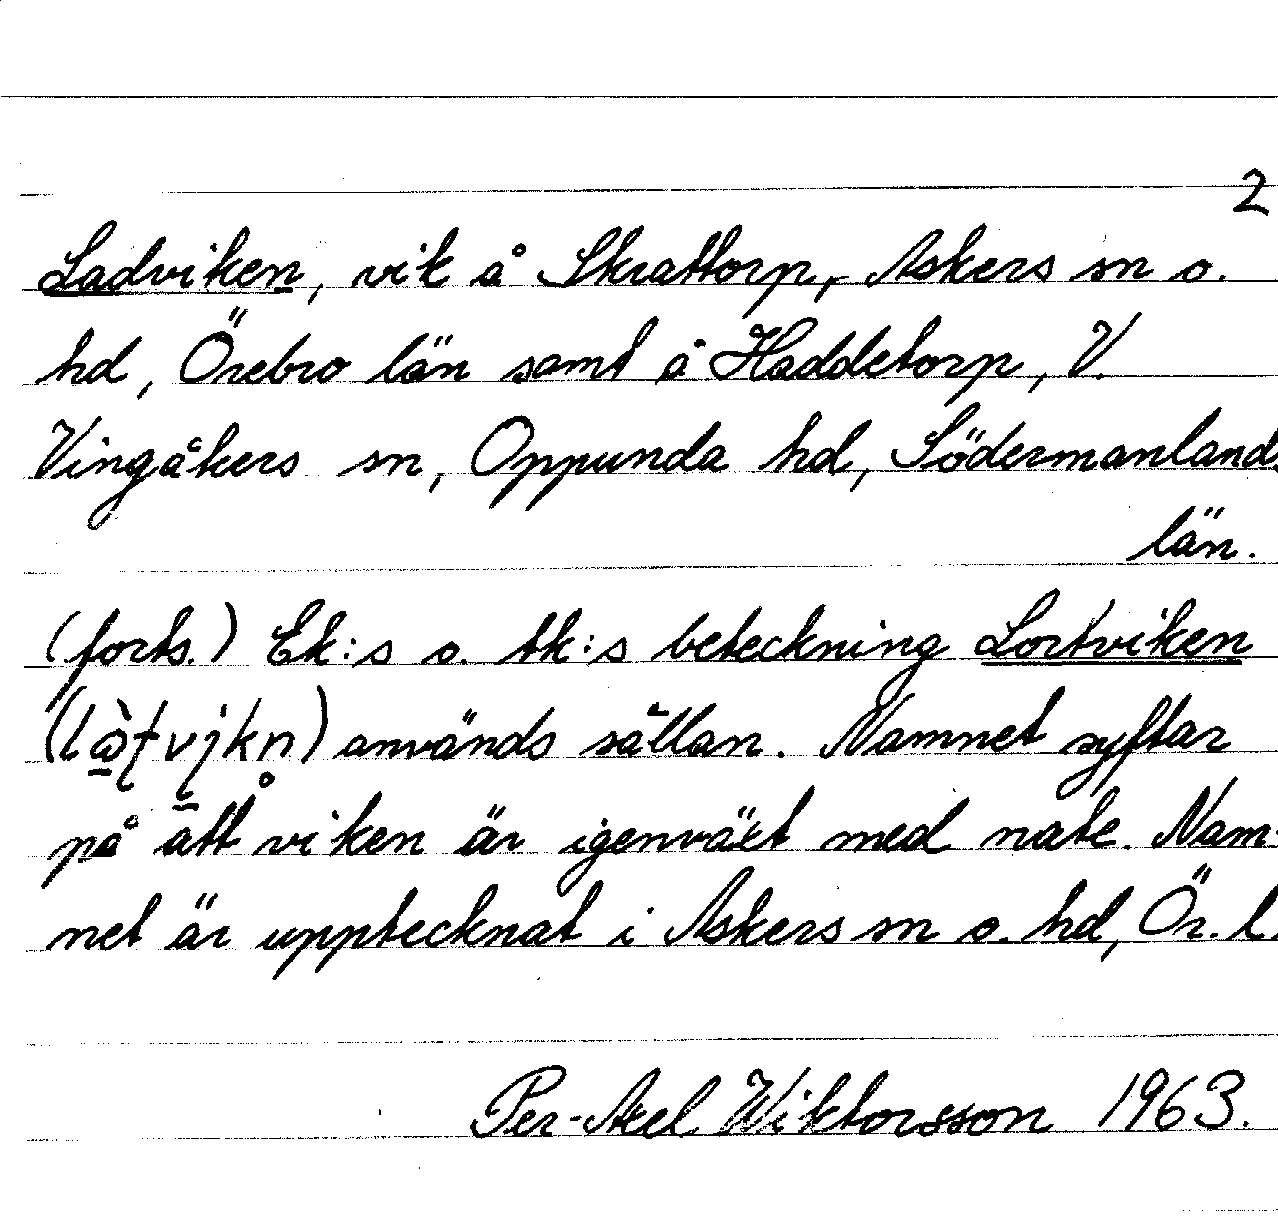 2
Ladviken, vik å Skrattorp, Askers sn o.
hd, Örebro län samt å Haddetorp, V.
Vingåkers sn, Oppunda hd, Södermanlands
län.
(forts.) Ek:s o. tk:s beteckning Lortviken
används sällan. Namnet syftar
på att viken är igenväxt med nate. Nam-
net är upptecknat i Askers sn o. hd, Ör. l.
Per-Axel Wiktorsson 1963.